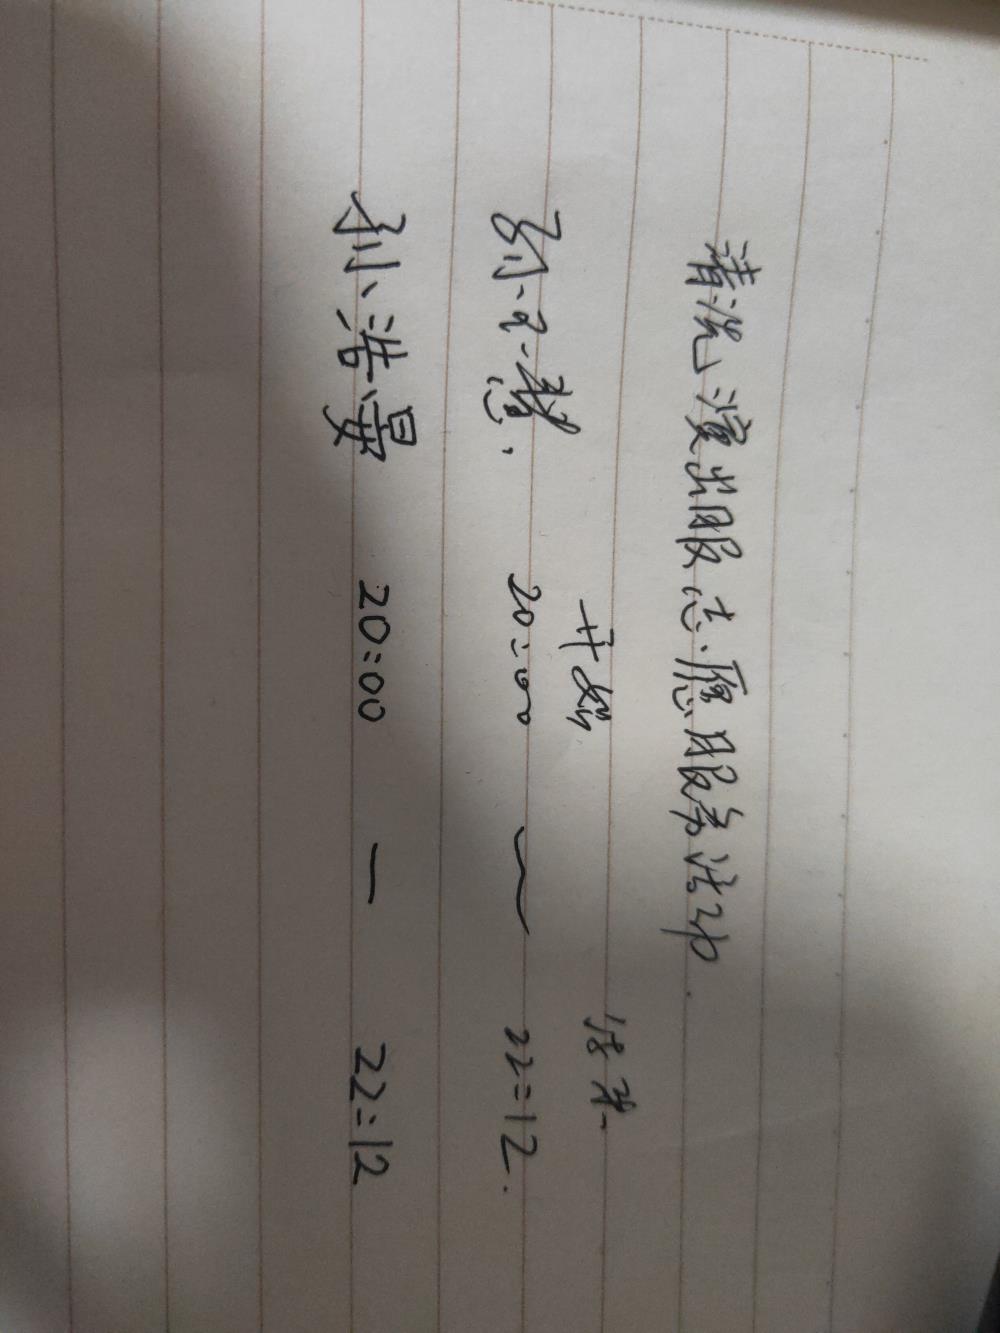 清洗演出服志愿服务活动.
开始 结束
孙子慧. 20:00 ~ 22:12.
孙浩晏 20:00 — 22:12